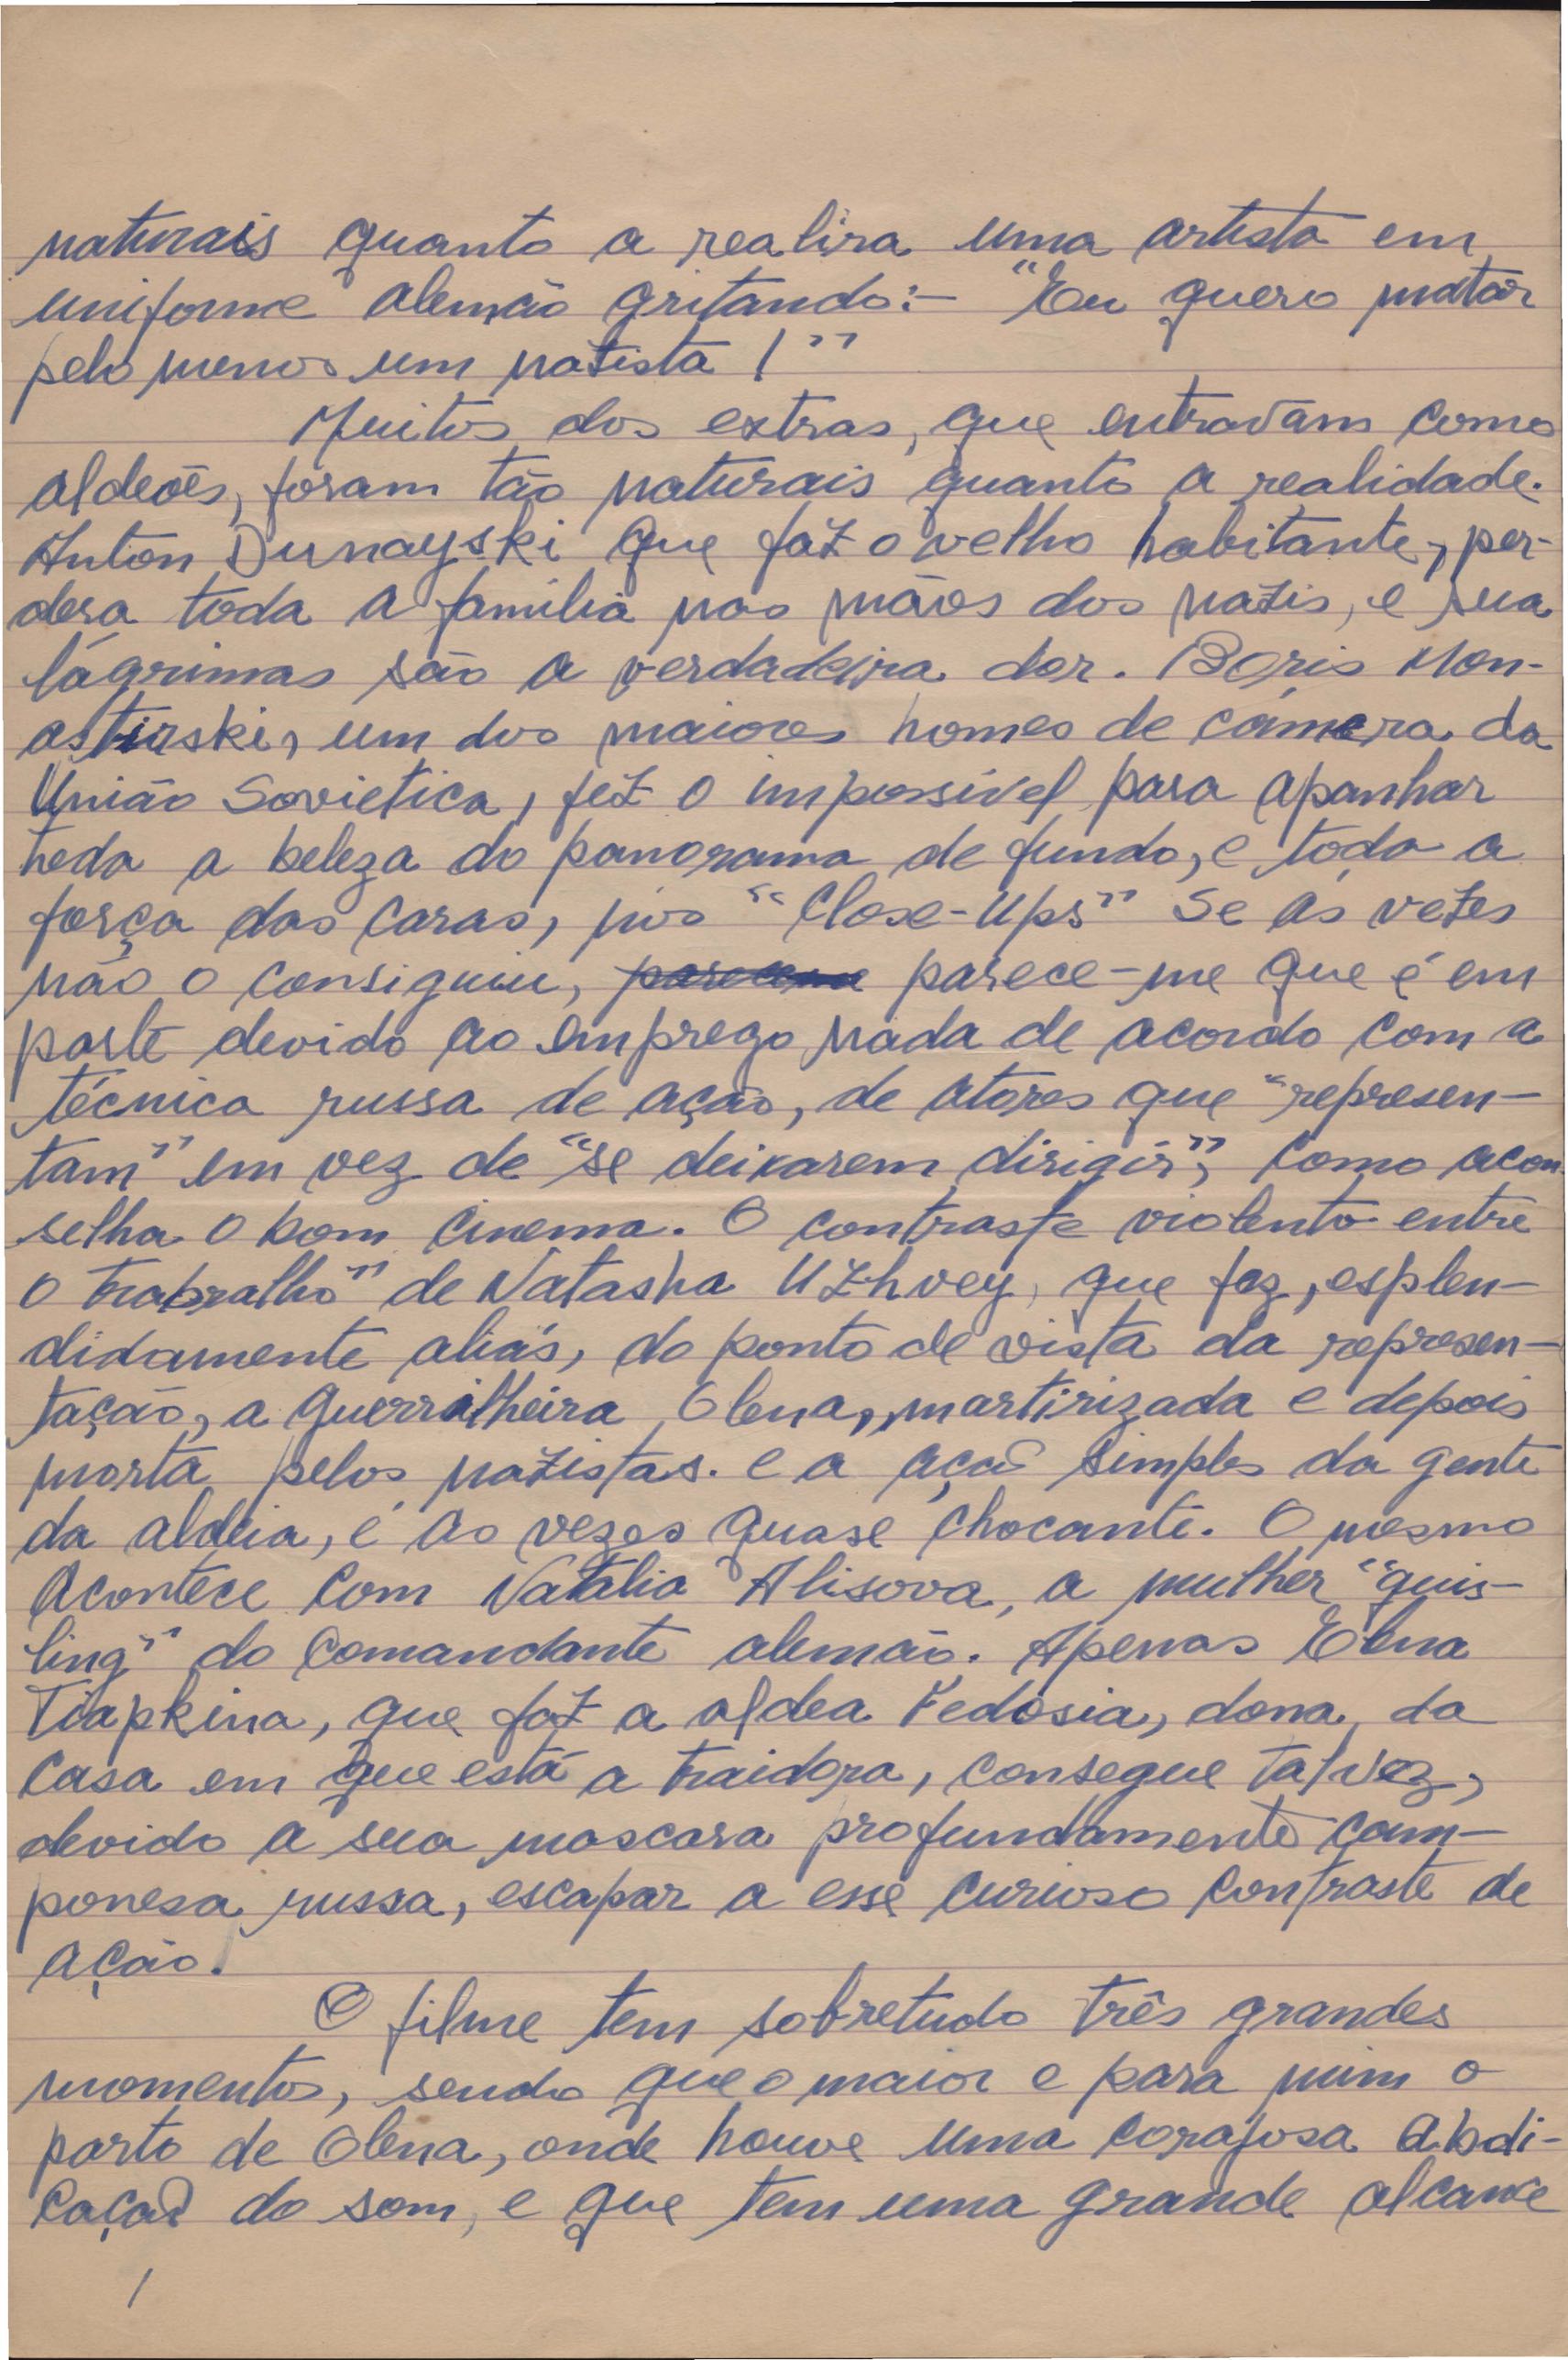 naturais quanto a realira uma artista em
uniforme alemão gritando:- "Eu quero matar
pelo menos um natista!"
Muitos dos extras, que entravam como
aldeões, foram tão naturais quanto a realidade.
Anton Dunayski que faz o velho habitante, per-
dera toda a família nas mãos dos nazis, e sua
lágrimas são a verdadeira dor. Boris Mon-
astirski, um dos maiores homes de câmera da
União Sovietica, fez o impossível para apanhar
toda a beleza do panorama de fundo, e toda a
força das caras, nos "Close-Ups" Se ás vezes
não o consiguiu, parece-me que é em
parte devido ao emprego nada de acordo com a
técnica russa de ação, de atores que "represen-
tam" em vez de "se deixarem dirigir", como acon-
selha o bom cinema. O contraste violento entre
o trabralho" de Natasha Uzhvey, que fez, esplen-
didamente aliás, do ponto de vista da represen-
tação, a guerrilheira Olena, martirizada e depois
morta pelos nazistas. e a ação simples da gente
da aldeia, é as vezes quase chocante. O mesmo
acontece com Natalia Alisova, a mulher "quis-
ling" do comandante alemão. Apenas Elena
Tiapkina, que faz a aldea Fedosia, dona da
casa em que está a traidora, consegue talvez,
devido a sua mascara profundamente cam-
ponesa russa, escapar a esse curioso contraste de
ação.
O filme tem sobretudo três grandes
momentos, sendo que o maior e para mim o
parto de Olena, onde houve uma corajosa abdi-
cação do som, e que tem uma grande alcance